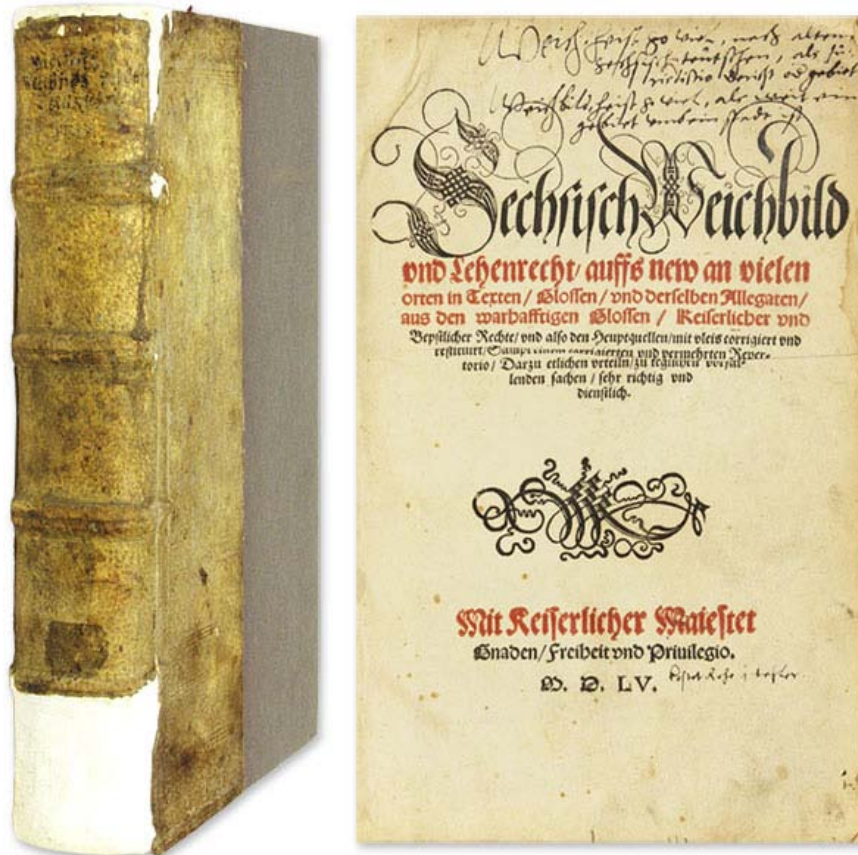 Weich heist so viel, nach altem
Weichbild heist so viel, als weit ein
gebiet umb ein stadt ist
Sechsisch Weichbild
vnd Lehenrecht/ auffs new an vielen
orten in Texten / Glossen / vnd derselben Allegaten /
aus den warhafftigen Glossen / Keiserlicher vnd
Bepstlicher Rechte/ vnd also den Heuptquellen/ mit vleis corrigiert vnd
restituirt/ Sampt einem corrigierten vnd vermehrten Reper-
torio / Darzu etlichen vrteiln/ zu teglichen vorfal-
lenden sachen / sehr richtig vnd
dienstlich.
Mit Keiserlicher Maiestet
Gnaden/ Freiheit vnd Priuilegio.
M. D. LV.